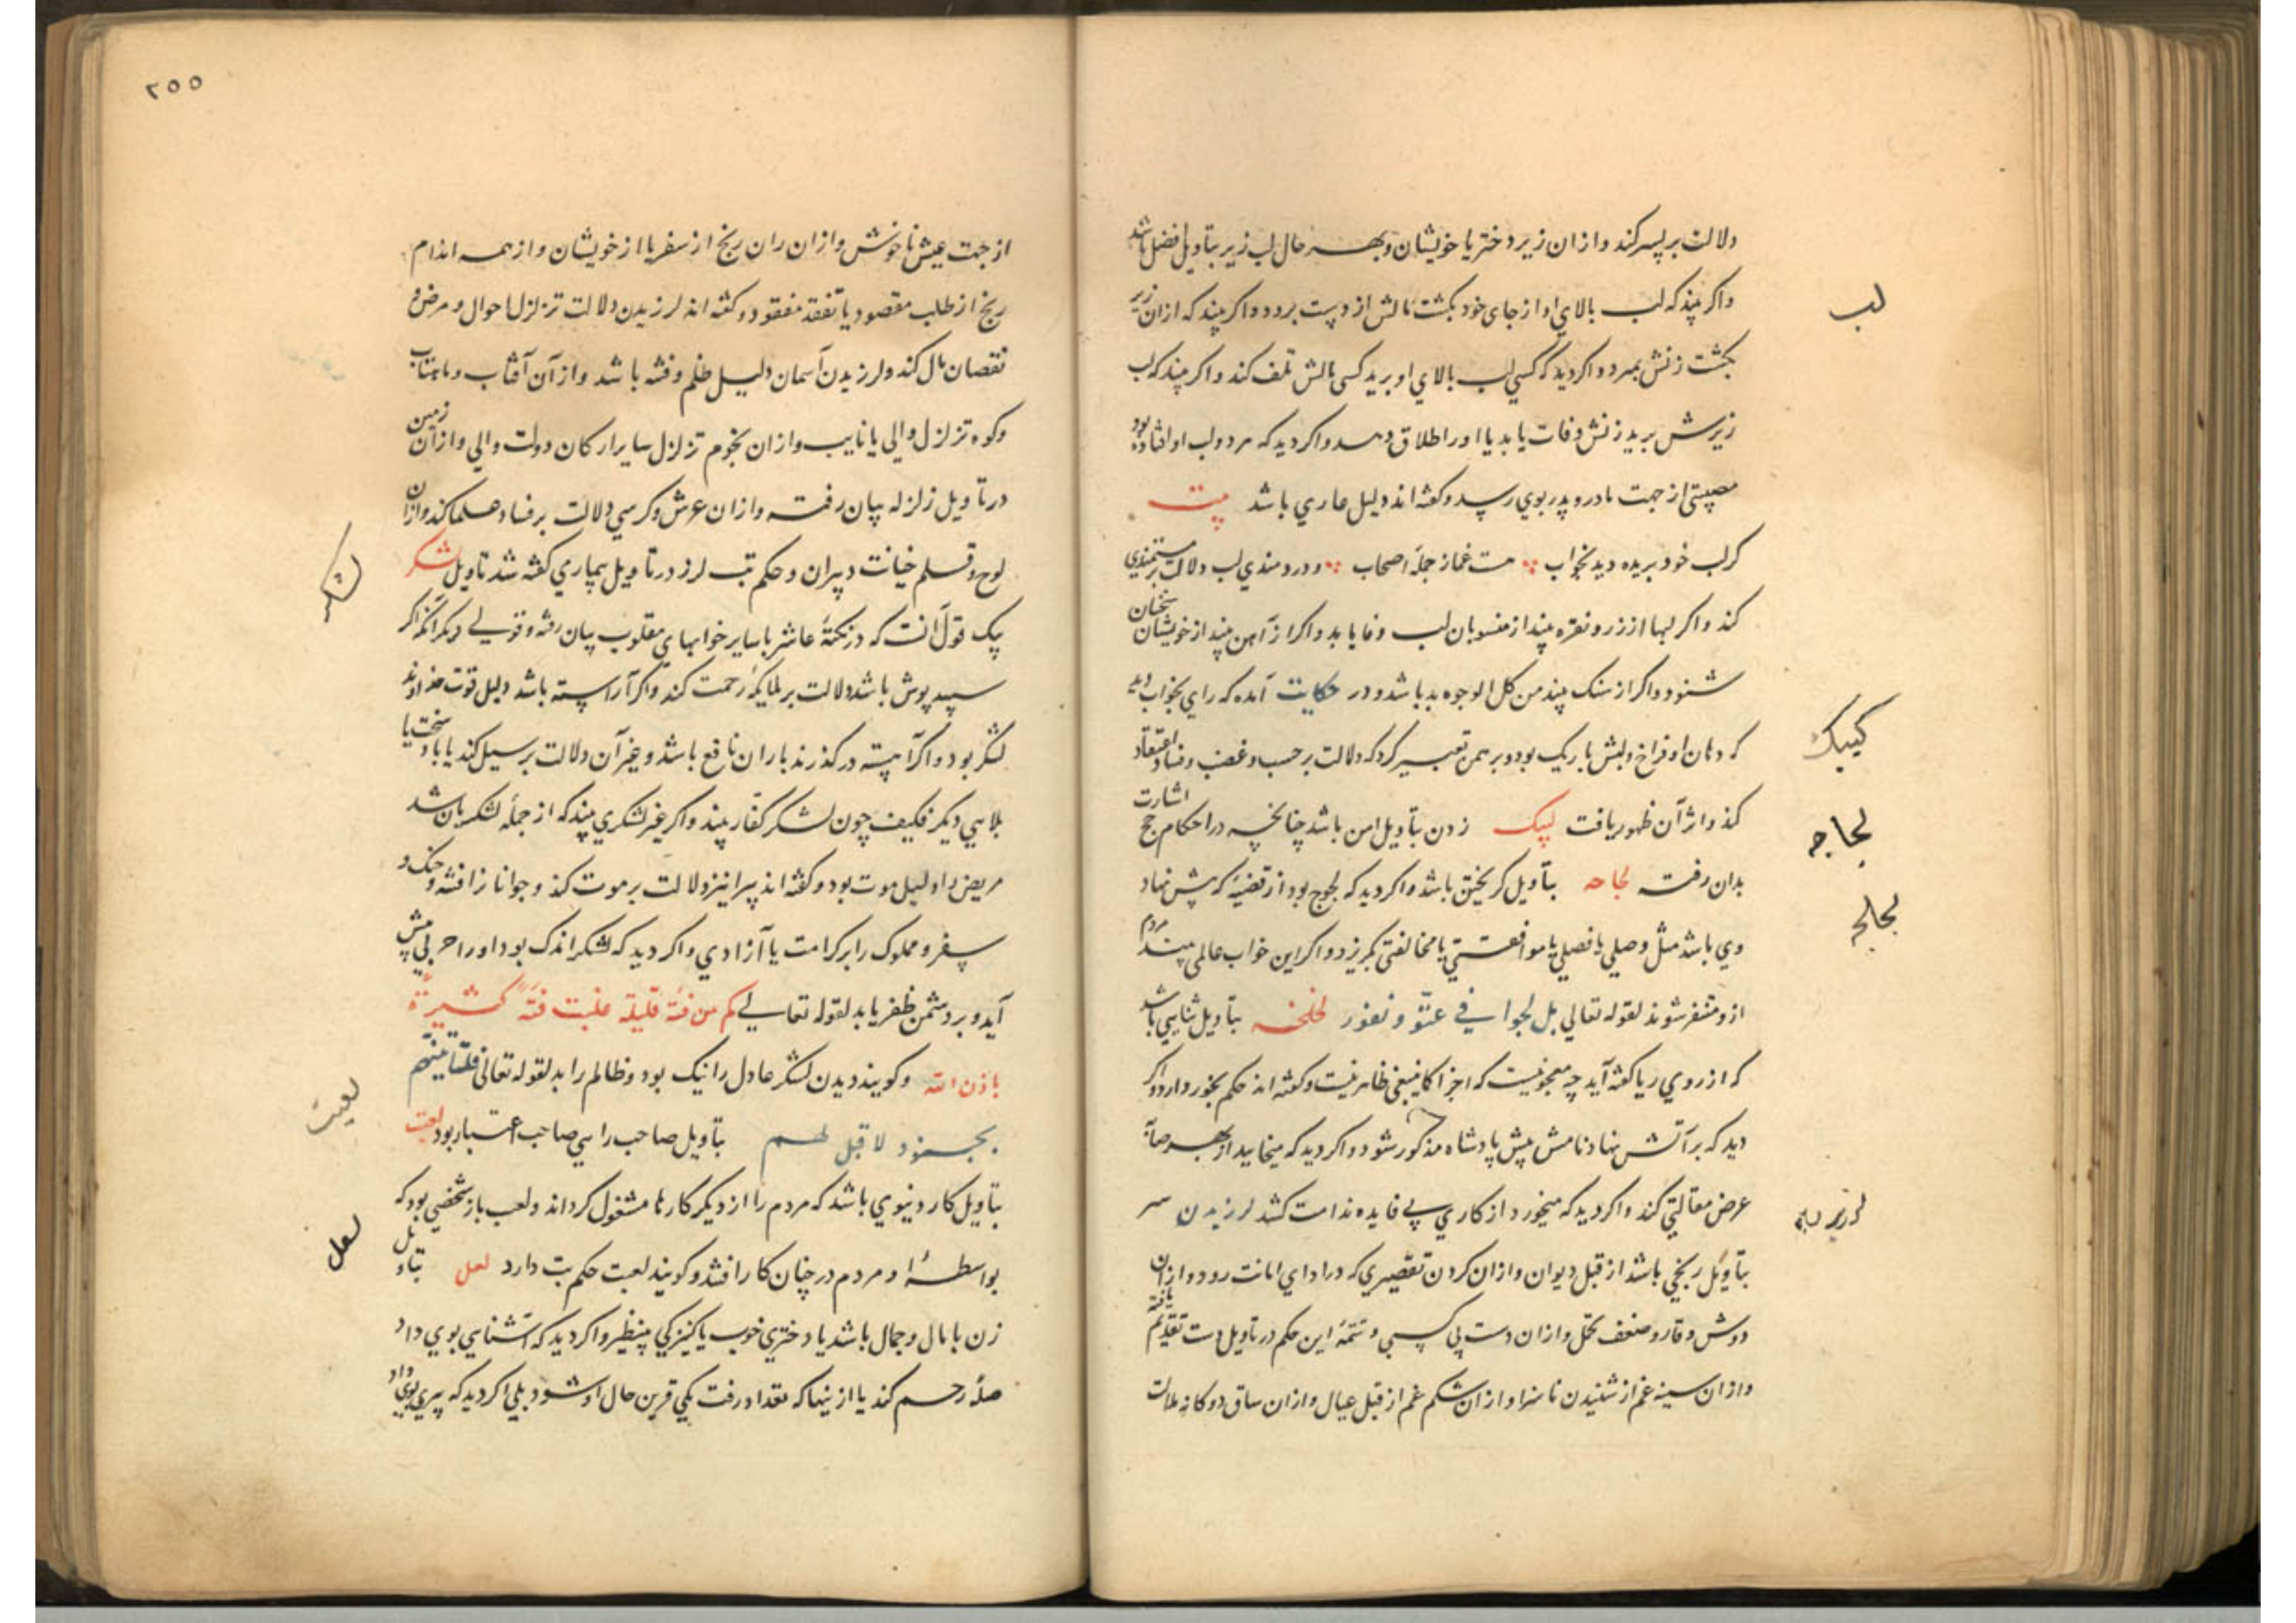 دلالت بر پسر کند و از ان زیر دختر یا خویشان و بهر حال لب زیر بتاویل فضل باشد
لب
و اکر بیند که لب بالای او از جای خود بکشت مالش از دست برود و اکر بیند که از ان زیر
بکشت زنش بمیرد و اکر دید که کسی لب بالای او برید کسی مالش تلف کند و اکر بیند که لب
زیرش برید زنش وفات یابد یا او را طلاق دهد و اکر دید که هر دو لب او افتاده بود
مصیبتی از جهت مادر و پدر بوی رسد و کفته اند دلیل عاری باشد بیت
کر لب خود بریده دید بخواب هست غماز جمله اصحاب و دردمندی لب دلالت بر مستمندی
کند و اکر لبها از زر و نقره بیند از منسوبان لب وفا یابد و اکر از آهن بیند از خویشان سخنان
شنود و اکر از سنک بیند من کل الوجوه بد باشد و در حکایت آمده که رای بخواب دید
که دهان او فراخ و لبش باریک بود و برهمن تعبیر کرد که دلالت بر حسب و غضب و فساد اعتقاد
کند و اثر آن ظهور یافت لبیک زدن بتاویل امن باشد چنانچه در احکام حج اشارت
لجاجه
بدان رفت لجاجه بتاویل کریختن باشد و اکر دید که لجوج بود از قضیه که پیش نهاد
وی باشد مثل وصلی یا فصلی یا موافقتی یا مخالفتی بکریزد و اکر این خواب عالمی بیند مردم
از و متنفر شوند لقوله تعالی بل لجوا فی عتو و نفور لخلخه بتاویل ثنایی باشد
که از روی ریا کفته آید چه معجونیست که اجزا کاینبغی ظاهر نیست و کفته اند حکم بخور دارد و اکر
دید که بر آتش نهاد نامش پیش پادشاه مذکور شود و اکر دید که میخاید از بهر
عرض مقالتی کند و اکر دید که میخورد از کاری بی فایده ندامت کشد لرزیدن سر
لرزیدن
بتاویل رنجی باشد از قبل دیوان و از ان کردن تقصیری که در ادای امانت رود و از ان
دوش وقار و ضعف تحمل و از ان دست بی کسبی و تتمه این حکم در تاویل دست تقدیم یافته
و از ان سینه غم از شنیدن ناسزا و از ان شکم غم از قبل عیال و از ان ساق دوکانه ملالت
۲۵۵
از جهت عیش ناخوش و از ان ران رنج از سفر یا از خویشان و از همه اندام
رنج از طلب مقصود یا تفقد مفقود و کفته اند لرزیدن دلالت تزلزل احوال و مرض و
نقصان مال کند و لرزیدن آسمان دلیل ظلم و فتنه باشد و از آن آفتاب و ماهتاب
و کوه تزلزل والی یا نایب و از ان نجوم تزلزل سایر ارکان دولت والی و از ان زمین
در تاویل زلزله بیان رفت و از ان عرش و کرسی دلالت بر فساد علما کند و از ان
لوح و قلم خیانت دبیران و حکم تب لرز در تاویل بیماری کفته شد تاویل لشکر
لشکر
یک قول آنست که در نکته عاشر با سایر خوابهای مقلوب بیان رفته و قولی دیکر آنکه اکر
سپید پوش باشد دلالت بر ملایکه رحمت کند و اکر آراسته باشد دلیل قوت خداوند
لشکر بود و اکر آهسته در کذرند باران نافع باشد و غیر آن دلالت بر سیل کند یا باد سخت یا
بلایی دیکر فکیف چون لشکر کفار بیند و اکر غیر لشکری بیند که از جمله لشکریان شد
مریض را دلیل موت بود و کفته اند پیرانیز دلالت بر موت کند و جوانا نرا فتنه و جنک و
سفر و مملوک را بر کرامت یا آزادی و اکر دید که لشکر اندک بود او را حربی پیش
آید و بر دشمن ظفر یابد لقوله تعالی کم من فئة قلیلة غلبت فئة کثیرة
باذن الله و کویند دیدن لشکر عادل را نیک بود و ظالم را بد لقوله تعالی فلنأتینهم
بجنود لا قبل لهم بتاویل صاحب رایی صاحب اعتبار بود لعبت
لعبت
بتاویل کار دنیوی باشد که مردم را از دیکر کارها مشغول کرداند و لعب باز شخصی بود که
بواسطه او مردم در چنان کار افتند و کویند لعبت حکم بت دارد لعل بتاویل
لعل
زن با مال و جمال باشد یا دختری خوب یا کنیزکی بینظیر و اکر دید که آشنایی بوی داد
صله رحم کند یا از ینها که تعداد رفت یکی قرین حال او شود بلی اکر دید که پیری بوی داد